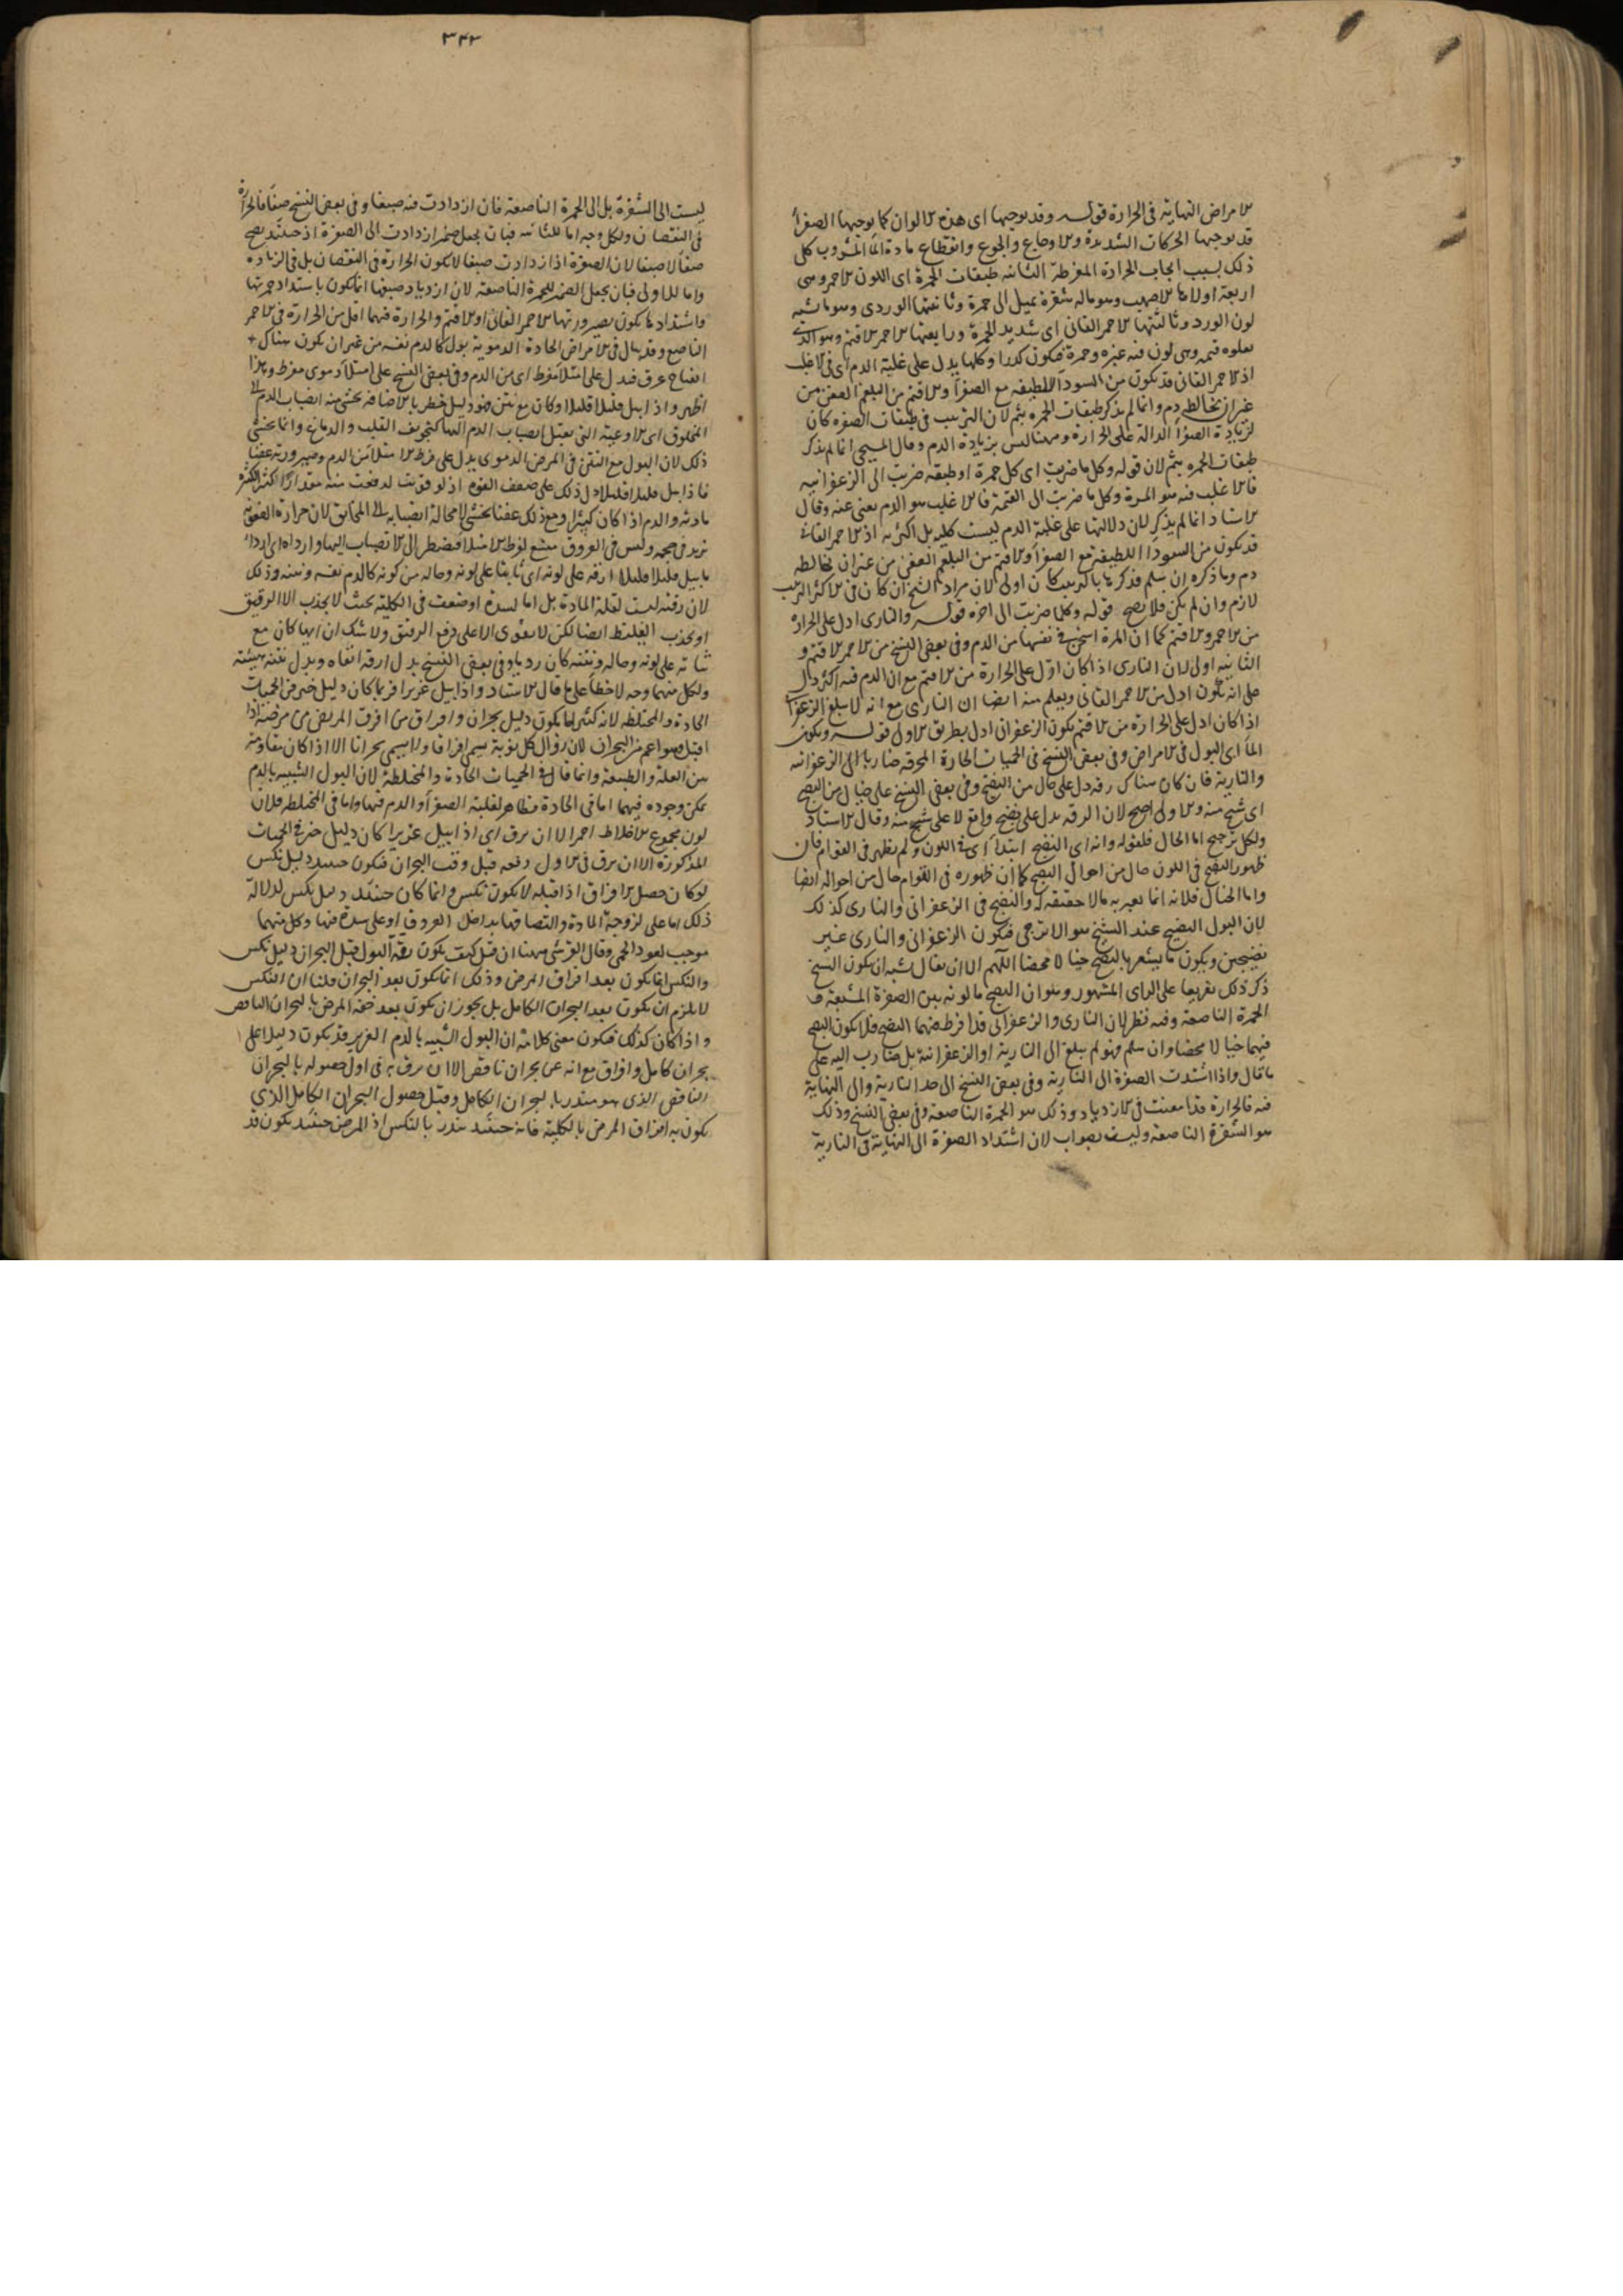 الامراض النهاية في الحرارة قوله وقد يوجبها اى هذه الالوان كما يوجبها الصفرا
قد يوجبها الحركات الشديدة والاوجاع والجوع وانقطاع مادة الما المشروب كل
ذلك بسبب ايجاب الحرارة المفرطة الثانيه طبقات الحمرة اى اللون الاحمر وهى
اربعة اولاها الاصهب وهو ماله شقرة يميل الى حمرة وثانيتها الوردى وهو ما يشبه
لون الورد وثالثتها الاحمر القانى اى شديد الحمرة ورابعتها الاحمر الاقتم وهو الذى
يعلوه قتمه وهى لون فيه غبره وحمرة فيكون كدرا وكلها يدل على غلبة الدم اى فى الاغلب
اذ الاحمر القانى قد يكون من السودا اللطيفه مع الصفرا والاقتم من البلغم العفن من
غير ان يخالطه دم وانما لم يذكر طبقات الحمره بثم لان الترتيب فى طبقات الصفره كان
لزيادة الصفرا الدالة على الحرارة وههنا ليس بزيادة الدم وقال المسيحى انما لم يذكر
طبقات الحمره بثم لان قوله وكل ما ضربت اى كل حمرة او طبقه ضربت الى الزعفرانيه
فالاغلب فيه هو المرة وكل ما ضربت الى القتمة فالاغلب هو الدم يغنى عنه وقال
الاستاد انما لم يذكر لان دلالتها على غلبة الدم ليست كليه بل اكثريه اذ الاحمر القانى
قد يكون من السودا اللطيفة مع الصفرا والاقتم من البلغم العفن من غير ان يخالطه
دم وما ذكره ان سلم فذكرها بالترتيب كان اولى لان مراد الشيخ ان كان فى الاكثر الترتيب
لازم وان لم يكن فلا يصح قوله وكلما ضربت الى اخره قوله والنارى ادل على الحرارة
من الاحمر والاقتم كما ان المرة اسخن فى نفسها من الدم وفى بعض النسخ من الاحمر الاقتم و
الثانيه اولى لان النارى اذا كان ادل على الحرارة من الاقتم مع ان الدم فيه اكثر دال
على انه يكون ادل من الاحمر القانى ويعلم منه ايضا ان النارى مع انه لا يبلغ الزعفرا
اذا كان ادل على الحرارة من الاقتم يكون الزعفرانى ادل بطريق الاولى قوله ويكون
الما اى البول فى الامراض وفى بعض النسخ فى الحميات الحارة المحرقه ضاربا الى الزعفرانيه
والنارية فان كان هناك رقه دل على حال من النضج وفى بعض النسخ على خيال من النضج
اى شبح منه والاولى اصح لان الرقه يدل على نضج واقع لا على شبح منه وقال الاستاد
ولكل ترجيح اما الحال فلقوله وانه اى النضج ابتدا اى فى اللون ولم يظهر فى القوام فان
ظهور النضج فى اللون حال من احوال النضج كما ان ظهوره فى القوام حال من احواله ايضا
واما الخيال فلانه انما يعبر به ما لا حقيقه له والنضج فى الزعفرانى والنارى كذلك
لان البول النضيج عند الشيخ هو الاترجى فيكون الزعفرانى والنارى غير
نضيجين ويكون ما يشعر بالنضج خيالا محضا اللهم الا ان يقال لشبه ان يكون الشيخ
ذكر ذلك تفريعا على الراى المشهور وهو ان النضج ما لونه بين الصفرة المشبعة و
الحمرة الناصعة وفيه نظر لان النارى والزعفرانى قد افرط فيهما النضج فلا يكون النضج
فيهما خيالا محضا وان سلم فهو لم يبلغ الى النارية او الزعفرانية بل ضارب اليه على
ما قال واذا اشتدت الصفرة الى النارية وفى بعض النسخ الى حد النارية والى النهاية
فيه فالحرارة قد امعنت فى الازدياد وذلك هو الحمرة الناصعة وفى بعض النسخ وذلك
هو الشقرة الناصعة وليست بصواب لان اشتداد الصفرة الى النهاية فى النارية
٣٤٣
ليست الى الشقرة بل الى الحمرة الناصعة فان ازدادت فيه صبغا وفى بعض النسخ صفا فالحرارة
فى النقصان ولكل وجه اما للثانيه فبان يجعل ضمير ازدادت الى الصفرة اذ حينئذ يصح
صفا لا صبغا لان الصفرة اذا ازدادت صبغا لا يكون الحرارة فى النقصان بل فى الزيادة
واما للاولى فبان يجعل الضمير للحمرة الناصعة لان ازدياد صبغها انما يكون باشتداد حمرتها
واشتدادها يكون بصيرورتها الاحمر القانى او الاقتم والحرارة فيهما اقل من الحرارة فى الاحمر
الناصع وقد يبال فى الامراض الحادة الدموية بول كالدم نفسه من غير ان يكون هناك
انفتاح عرق فيدل على امتلا مفرط اى من الدم وفى بعض النسخ على امتلا دموى مفرط وهذا
اظهر واذا بيل قليلا قليلا وكان مع نتن فهو دليل خطر بالاضافة يخشى منه انصباب الدم الى
المخنوق اى الاوعية التى يقبل انصباب الدم اليها كتجويف القلب والدماغ وانما يخشى
ذلك لان البول مع النتن فى المرض الدموى يدل على فرط الامتلا من الدم وصيرورته عفنا
فاذا بيل قليلا قليلا دل ذلك على ضعف القوة اذ لو قويت لدفعت منه مقدارا اكثر لكثرة
مادته والدم اذا كان كثيرا ومع ذلك عفنا يخشى لا محالة انصبابه الى المخانق لان حرارة العفونه
تزيد فى حجمه وليس فى العروق متسع لفرط الامتلا فيضطر الى الانصباب اليها وارداه اى اردا
ما يبيل قليلا قليلا ارقه على لونه اى باقيا على لونه وحاله من كونه كالدم نفسه ونتنه وذلك
لان رقته ليست لقلة المادة بل اما لسدة او ضعف فى الكلية بحيث لا يجذب الا الرقيق
او يجذب الغليظ ايضا لكن لا يقوى الا على دفع الرقيق ولا شك ان ايها كان مع
ثباته على لونه وحاله ونتنه كان رديا وفى بعض النسخ بدل ارقه انقاه وبدل نتنه هيئته
ولكل منهما وجه لا خطا على ما قال الاستاد واذا بيل غزيرا فربما كان دليل خير فى الحميات
الحادة والمختلطة لانه كثيرا ما يكون دليل بحران وافراق من افرق المريض من مرضه اذا
اقبل وهو اعم من البحران لان زوال كل نوبة يسمى افراقا ولا يسمى بحرانا الا اذا كان بمقاومة
بين العلة والطبيعة وانما قال فى الحميات الحادة والمختلطة لان البول الشبيه بالدم
يمكن وجوده فيهما اما فى الحادة فظاهر لغلبة الصفرا والدم فيها واما فى المختلطه فلان
لون مجموع الاخلاط احمر الا ان يرق اى اذا بيل غزيرا كان دليل خير فى الحميات
المذكورة الا ان يرق فى الاول دفعه قبل وقت البحران فيكون حينئذ دليل نكس
لو كان حصل الافراق اذ قبله لا يكون نكس وانما كان حينئذ دليل نكس لدلالة
ذلك اما على لزوجة المادة والتصاقها بداخل العروق او على سدة فيها وكل منهما
موجب لعود الحمى وقال القرشى ههنا ان قيل كيف يكون رقة البول قبل البحران دليل نكس
والنكس انما يكون بعد افراق المرض وذلك انما يكون بعد البحران قلنا ان النكس
لا يلزم ان يكون بعد البحران الكامل بل يجوز ان يكون بعد خفة المرض بالبحران الناقص
واذا كان كذلك فيكون معنى كلامه ان البول الشبيه بالدم الغزير قد يكون دليلا على
بحران كامل وافراق مع انه عن بحران ناقص الا ان يرق به فى اول حصوله بالبحران
الناقص الذى هو منذر بالبحران الكامل وقبل حصول البحران الكامل الذى
يكون به افراق المرض بالكلية فانه حينئذ ينذر بالنكس اذ المرض حينئذ يكون قد